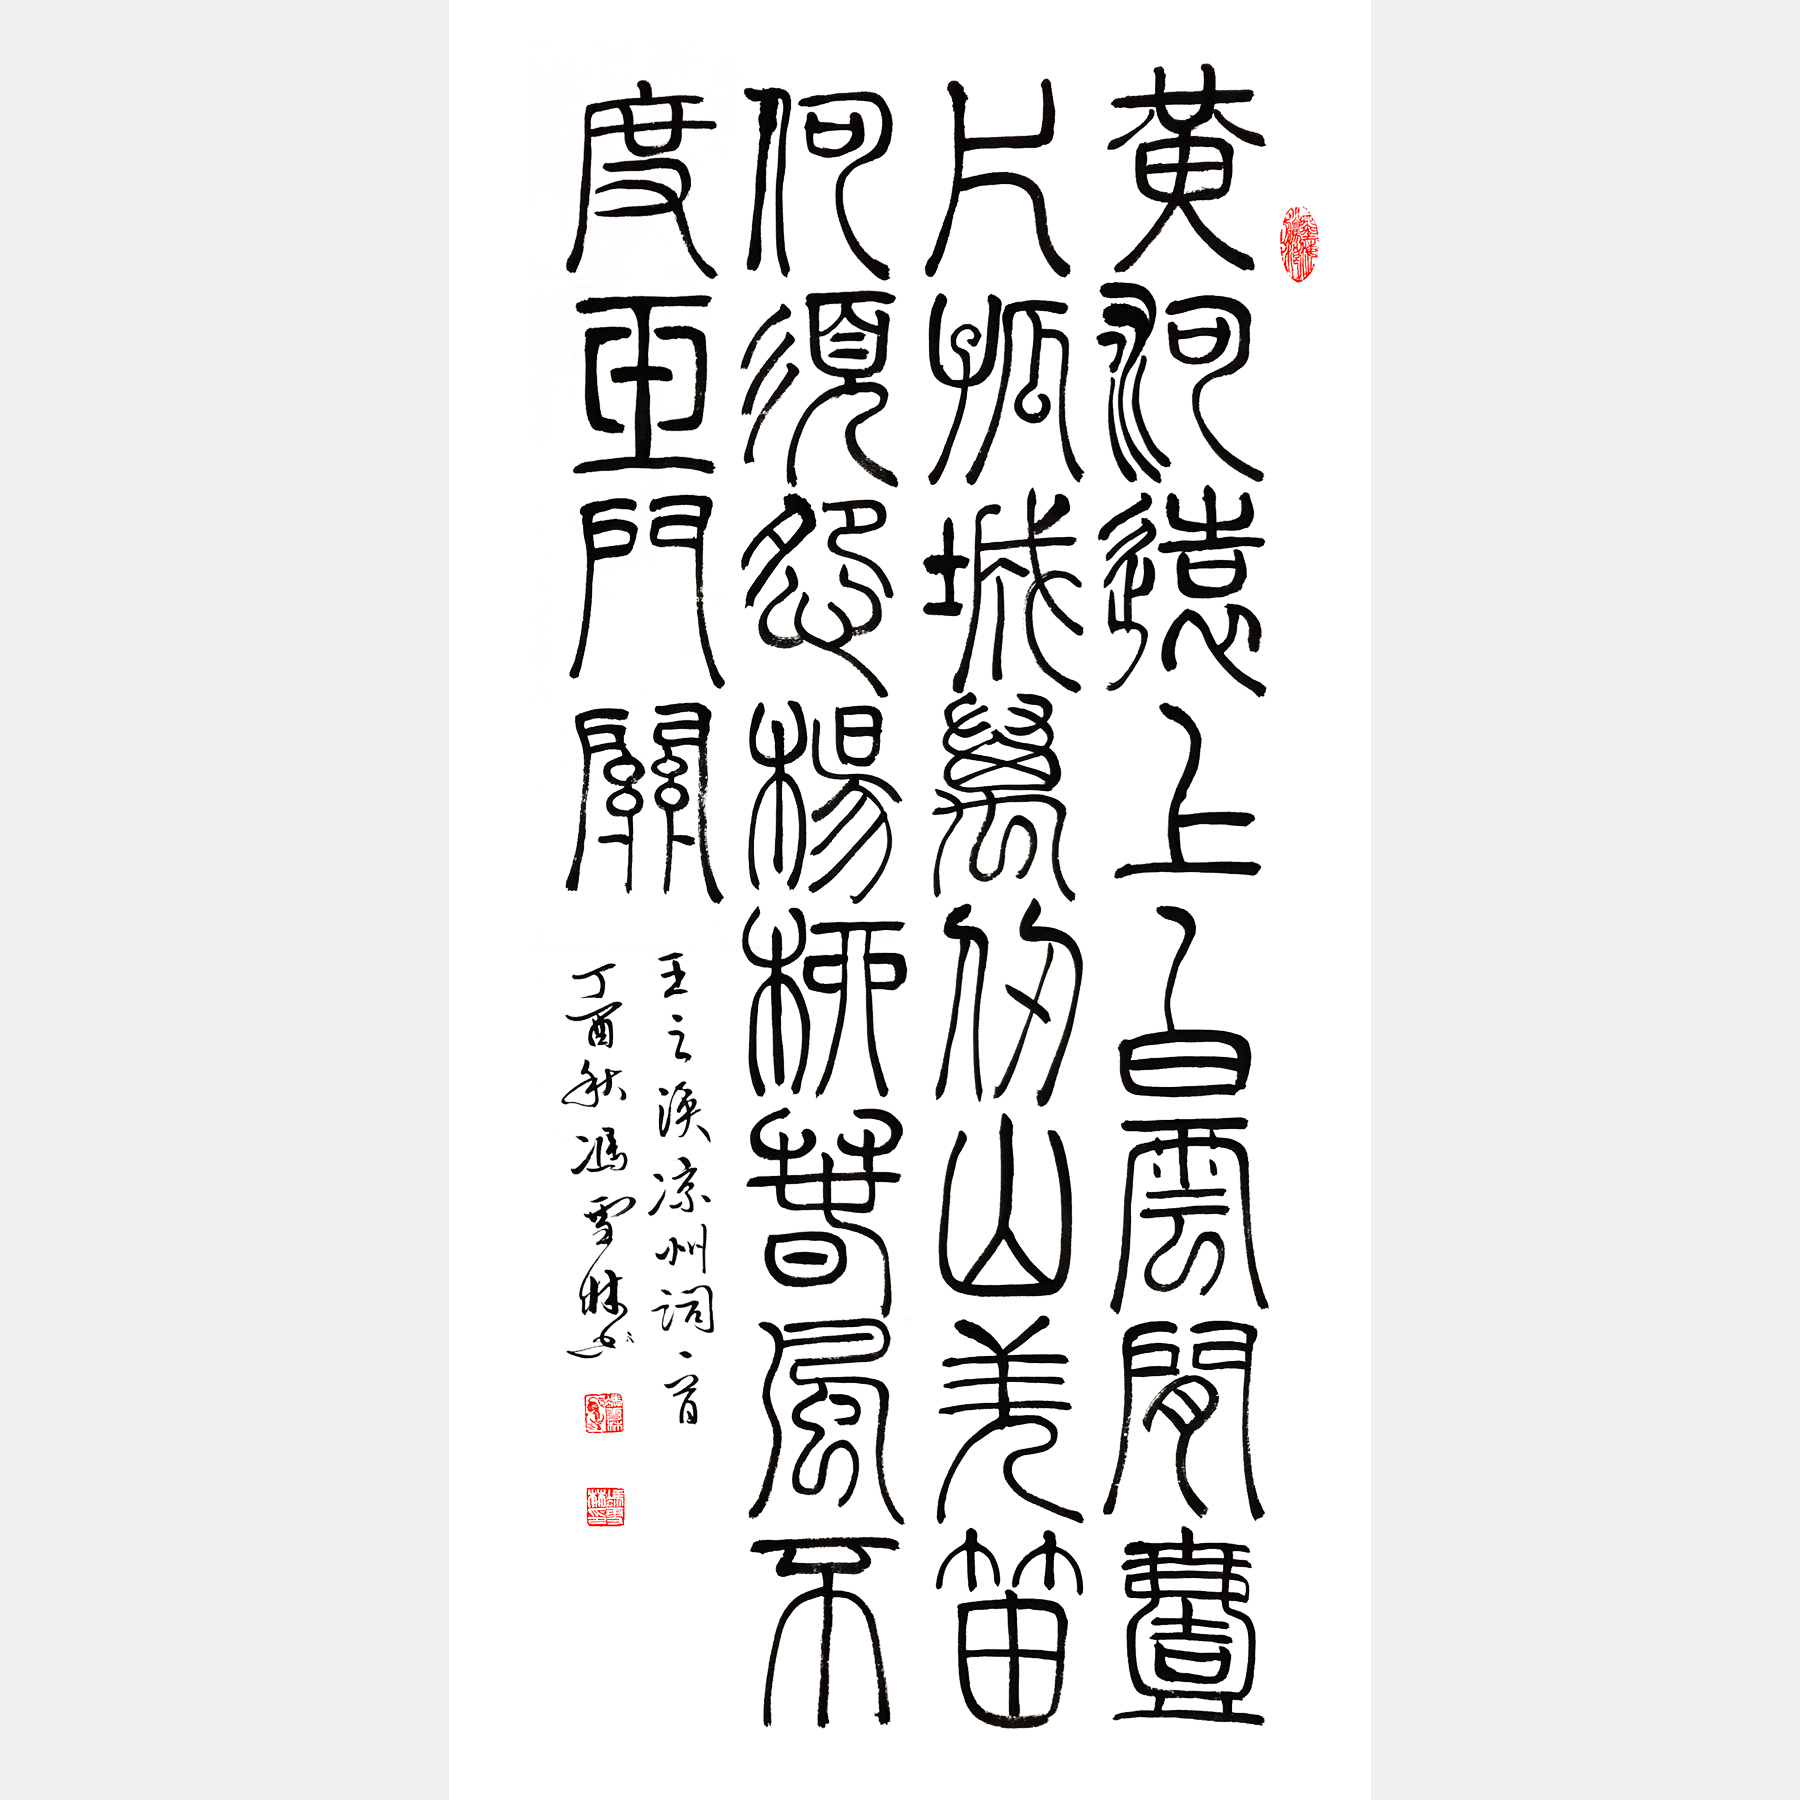 黄河遠上白雲間壹
片孤城萬仞山羌笛
何須怨楊柳春風不
度玉門關
王之涣凉州詞一首
丁酉秋馮雪林书